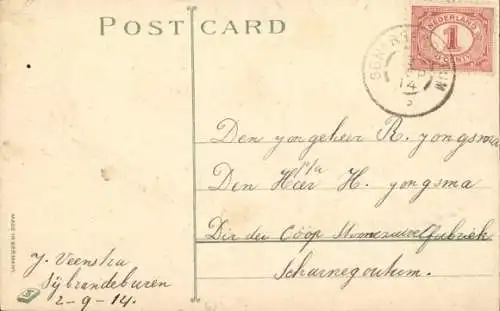 POST CARD
NEDERLAND
1
CENT
14
Den jongeheer R. jongsma
p/a
Den Heer H. jongsma
Dir der Coöp Stoomzuivelfabriek
Scharnegoutum.
J. Veenstra
Sijbrandeburen
2-9-14.
MADE IN GERMANY